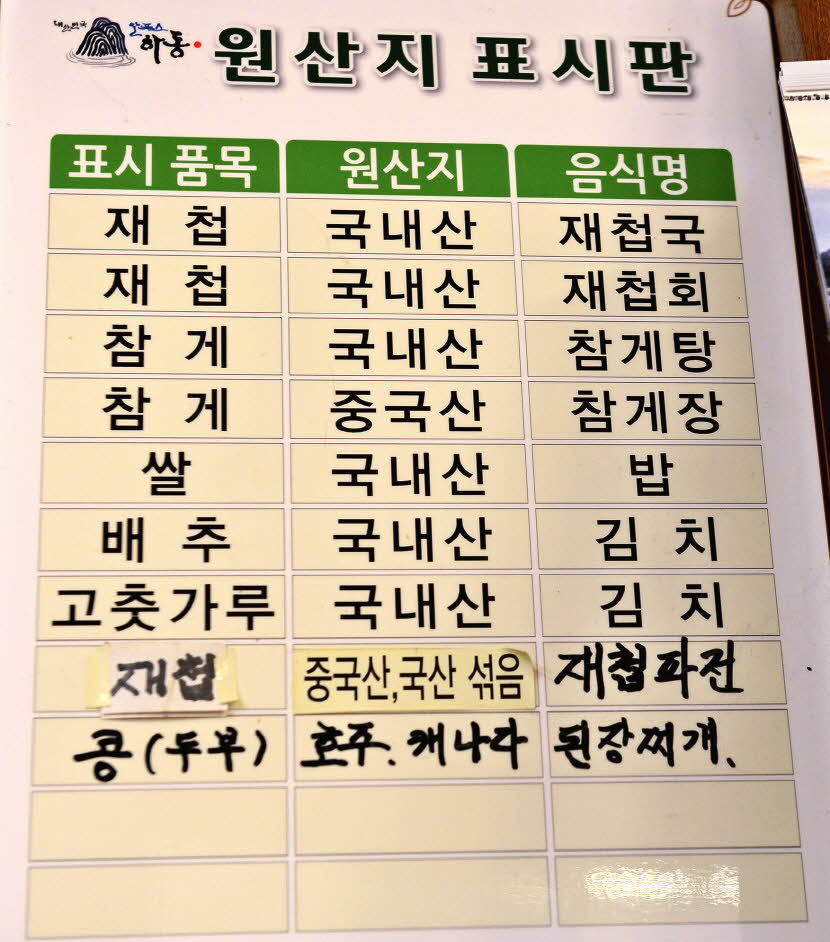 대한민국 알프스
하동 · 원산지 표시판
표시 품목 원산지 음식명
재 첩 국내산 재첩국
재 첩 국내산 재첩회
참 게 국내산 참게탕
참 게 중국산 참게장
쌀 국내산 밥
배 추 국내산 김 치
고춧가루 국내산 김 치
재첩 중국산,국산 섞음 재첩파전
콩(두부) 호주. 캐나다 된장찌개.